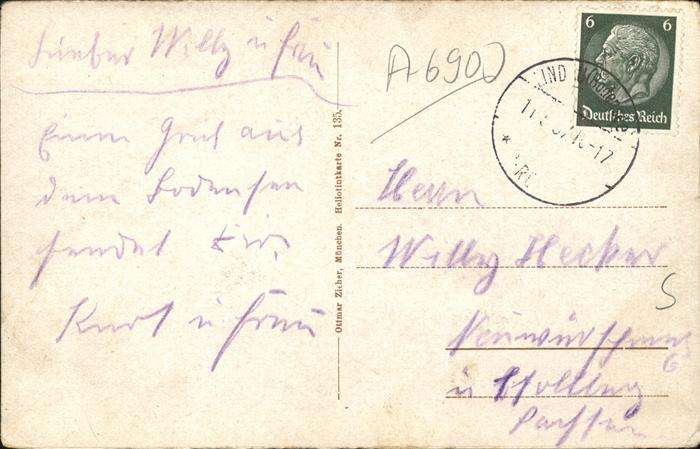 Lieber Willy u Frau
Einen Gruß aus
dem Bodensee
sendet Dir
Kurt u Frau
Ottmar Zieher, München. Heliotintkarte Nr. 135.
A 690
6 6
Deutsches Reich
LIND
16-17
Herrn
Willy Hecker
Neuwürschnitz
Sachsen
S
6